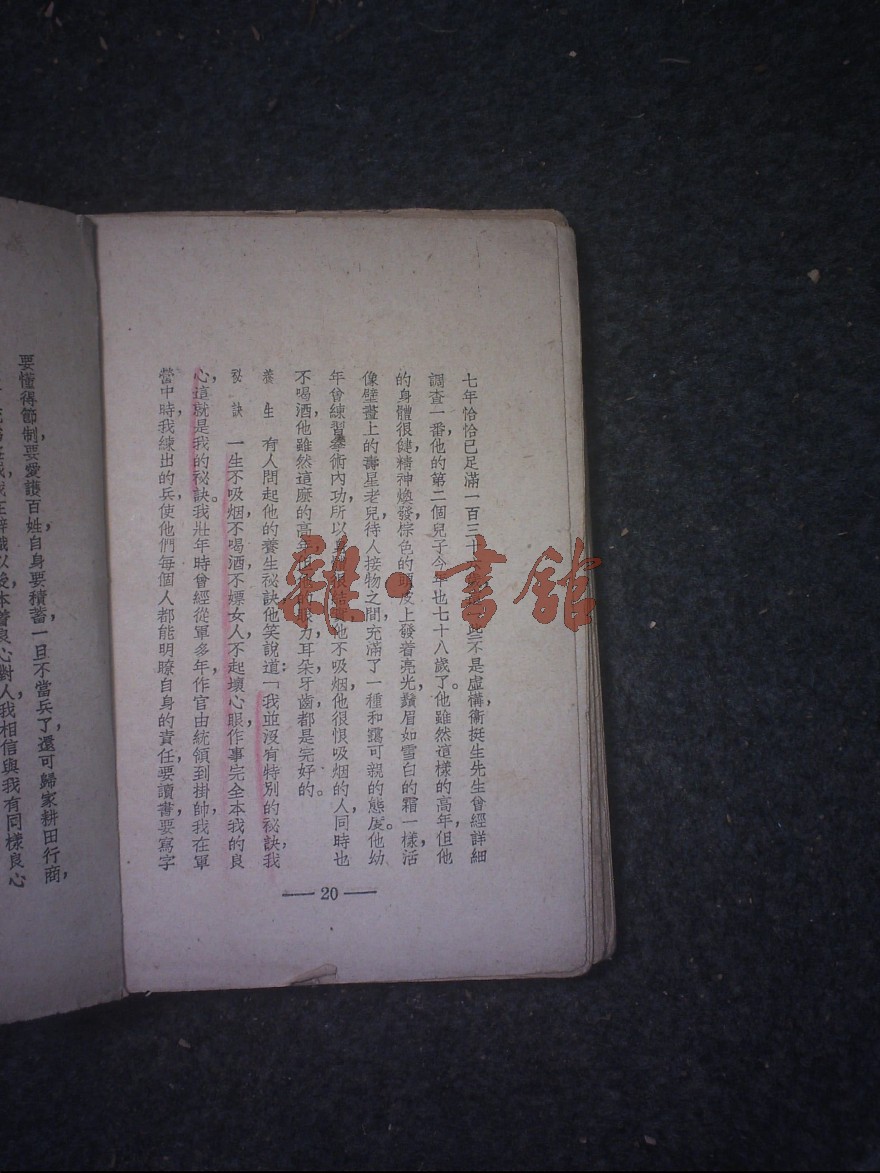 七年恰恰已足滿一百三十些不是虛構衞挺生先生曾經詳細
調查一番，他的第二個兒子今年也七十八歲了。他雖然這樣的高年，但他
的身體很健，精神煥發，棕色的頭皮上發着亮光，鬚眉如雪白的霜一樣，活
像壁畫上的壽星老兒，待人接物之間，充滿了一種和靄可親的態度。他幼
年曾練習拳術內功，所以他不吸烟，他很恨吸烟的人，同時也
不喝酒，他雖然這麽的高年，力，耳朵牙齒都是完好的。
養生　有人問起他的養生祕訣，他笑說道：「我並沒有特別的祕訣，我
祕訣　一生不吸烟，不喝酒，不嫖女人，不起壞心眼，作事完全本我的良
心，這就是我的祕訣。我壯年時曾經從軍多年，作官由統領到掛帥，我在軍
營中時，我練出的兵，使他們每個人都能明瞭自身的責任，要讀書，要寫字
—20—
要懂得節制，要愛護百姓，自身要積蓄，一旦不當兵了，還可歸家耕田行商，
以後本着良心對人，我相信與我有同樣良心
雜·書館